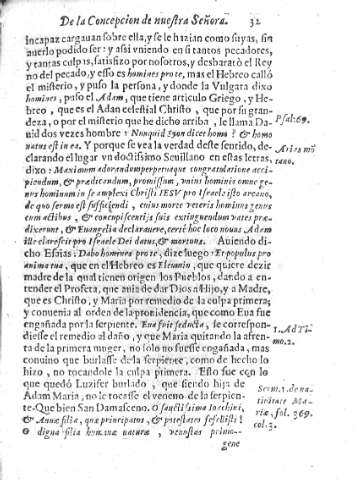 De la Concepcion de nuestra Señora. 32
incapaz cargauan sobre ella, y se le hazian como suyas, sin
auerlo podido ser: y assi viniendo en si tantos pecadores,
y tantas culpas, satisfizo por nosotros, y desbaratò el Rey
no del pecado, y esso es homines pro te, mas el Hebreo callò
el misterio, y puso la persona, y donde la Vulgara dixo
homines, puso el Adam, que tiene articulo Griego, y He-
breo, que es el Adan celestial Christo, que por su gran-
deza, o por el misterio que he dicho arriba, le llama Da-
uid dos vezes hombre: Nonquid Sion dicet homo? & homo
natus est in ea. Y porque se vea la verdad deste sentido, de-
clarando el lugar vn doctissimo Seuillano en estas letras,
dixo: Maximum adorandum perpetuaque congratulatione acci-
piendum, & prædicandum, promissum, vnius hominis omne ge-
nus hominum in se amplexi Christi IESV pro Israele isto arcano,
de quo sermo est suffigendi, cuius morte veteris hominis genus
cum actibus, & concupiscentijs suis extinguendum vates præ-
dixerunt, & Euangelia declarauere, certè hoc loco nouus Adam
ille clarescit pro Israele Dei datus, & mortuus. Auiendo di-
cho Esaias: Dabo homines pro te, dize luego: Et populus pro
anima tua, que en el Hebreo es Eleimin, que quiere dezir
madre de la qual tienen origen los Pueblos, dando a en-
tender el Profeta, que auia de dar Dios a Hijo, y a Madre,
que es Christo, y Maria por remedio de la culpa primera;
y conuenia al orden de la prouidencia, que como Eua fue
engañada por la serpiente. Eua fuit seducta, se correspon-
diesse el remedio al daño, y que Maria quitando la afren-
ta de la primera muger, no solo no fuesse engañada, mas
conuino que burlasse de la serpiente, como de hecho lo
hizo, no tocandole la culpa primera. Esto fue con lo
que quedó Luzifer burlado, que siendo hija de
Adam Maria, no le tocasse el veneno de la serpien-
te. Que bien San Damasceno. O sanctissima Ioachini,
& Annæ filia, quæ principatos, & potestates fefellisti!
O digna filia humanæ naturæ, venustas primæ-
gene
Psal. 69.
Arias mõ
tano.
1. Ad Ti-
mo. 2.
Serm. 1. de na-
tiuitate Ma-
riæ, fol. 369.
col. 3.